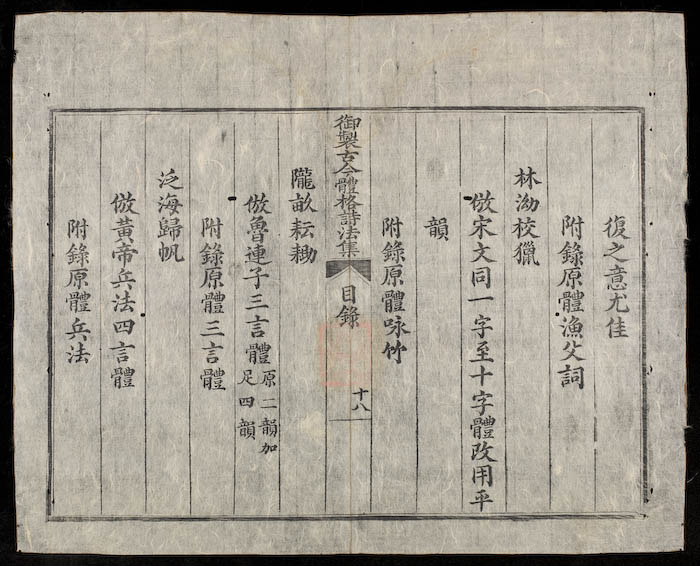 復之意尤佳
附錄原體漁父詞
林泑校獵
倣宋文同一字至十字體改用平
韻
附錄原體咏竹
御製古今體格詩法集
目錄
十八
隴畝耘耡
倣魯連子三言體原二韻加
足四韻
附錄原體三言體
泛海歸帆
倣黃帝兵法四言體
附錄原體兵法